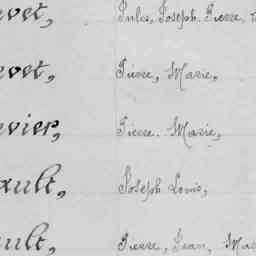 evet, Jules, Joseph. Pierre,
evet, Pierre, Marie,
evier, Pierre. Marie,
ault, Joseph Louis,
ault, Pierre, Jean, Ma